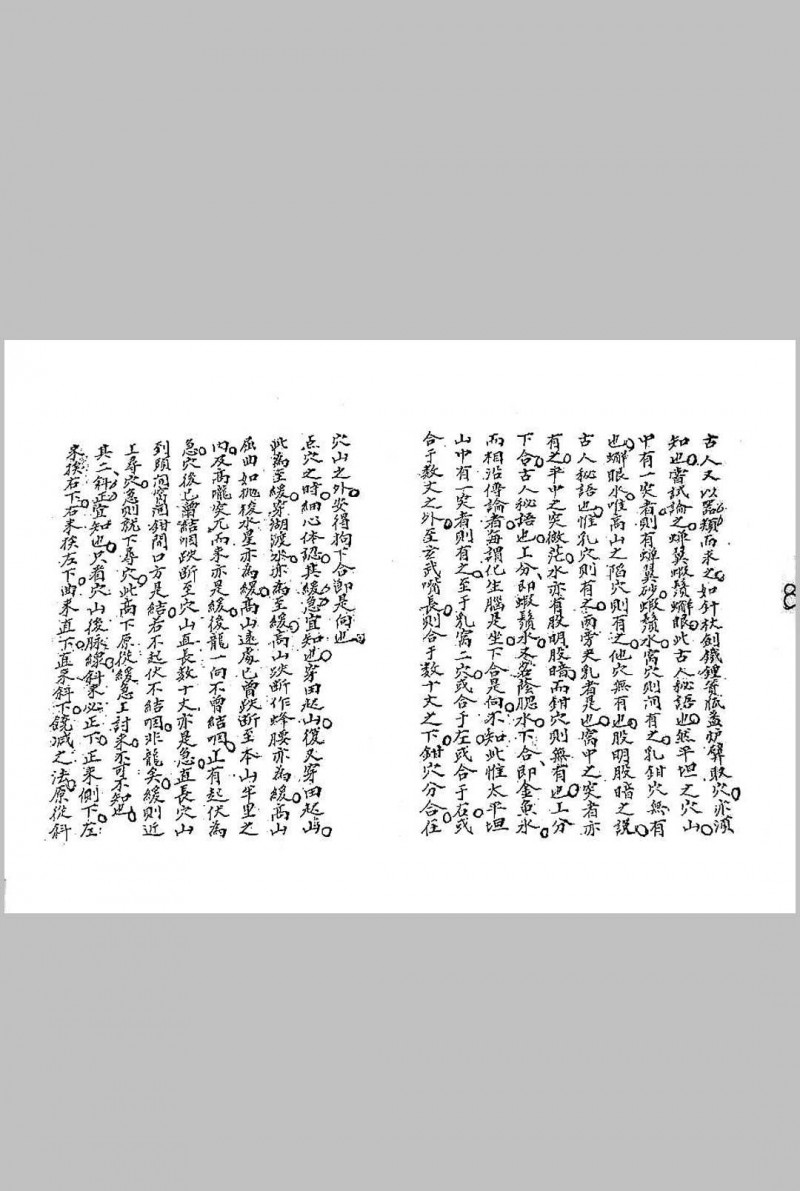 古人又以器類而求之如針杖劍鐵鍾簷底盖炉臂取穴亦須
知也嘗試論之蟬翼蝦鬚蠏眼此古人秘語也然平坦之穴山
中有一突者則有蟬翼砂蝦鬚水窩穴則间有之乳鉗穴無有
也蠏眼水唯高山之陷穴則有之他穴無有也股明股暗之説
古人秘語也惟乳穴則有不両旁夹乳者是也窩中之突者亦
有之平中之突微茫水亦有股明股暗而鉗穴則無有也上分
下合古人秘語也上分即蝦鬚水又名蔭腮水下合即金魚水
而相沿傳論者每謂化生腦是坐下合是向不知此惟太平坦
山中有一突者則有之至于乳窩二穴或合于左或合于右或
合于数丈之外至玄武嘴長則合于数十丈之下鉗穴分合任
穴山之外安得拘下合即是向也
点穴之時細心体認其緩急宜知也穿田起山復又穿田起山
此為至緩穿湖渡水亦為至緩高山跌断作蜂腰亦為緩高山
屈曲如抛梭水星亦為緩高山遠處已曾跌断至本山半里之
内及高隴突兀而来亦是緩後龍一向不曾結咽上有起伏為
急穴後已曾結咽跌断至穴山直長数十丈亦是急直長穴山
到頭间窩间鉗開口方是結右不起伏不結咽非龍矣緩則近
上尋穴急則就下尋穴此高下原從緩急上討来不可不知也
其二斜正宜知也只看穴山後脉線斜来必正下正来側下左
来挨右下右来挨左下曲来直下直来斜下饒减之法原從斜
8